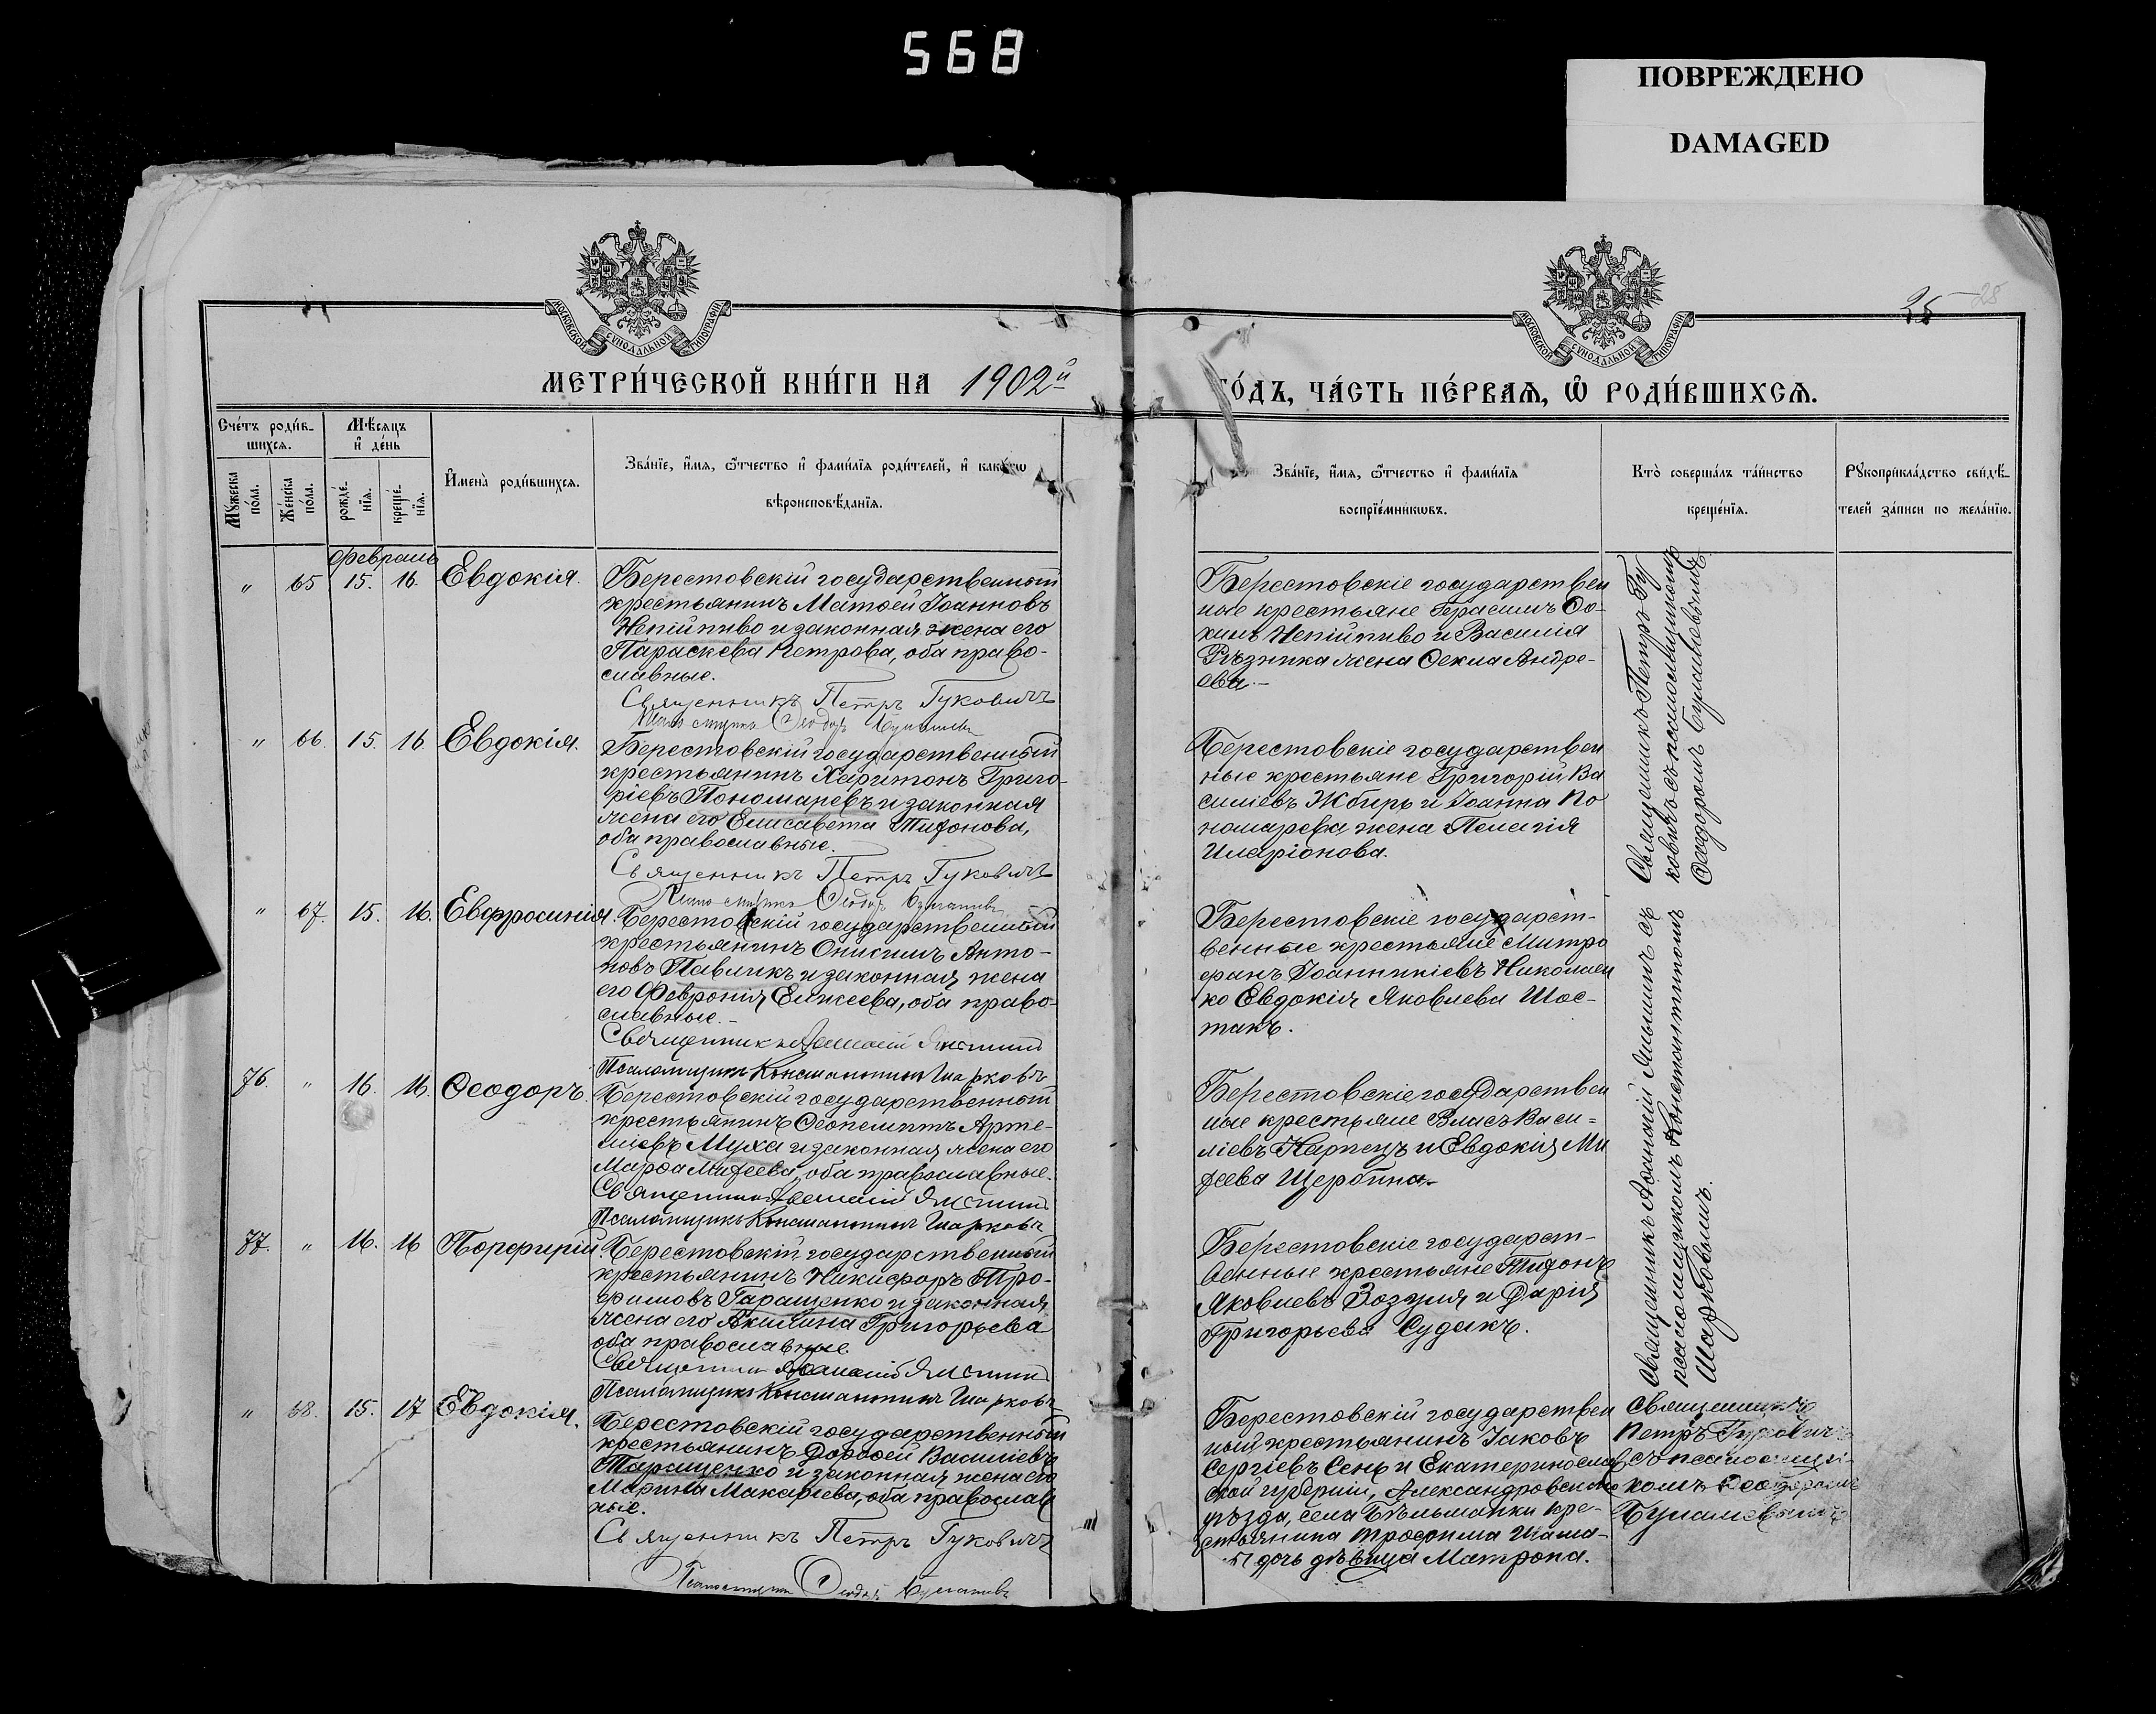 568
ПОВРЕЖДЕНО
DAMAGED
МОСКОВСКОЙ СѴНОДАЛЬНОЙ ТИПОГРАФІИ
МОСКОВСКОЙ СѴНОДАЛЬНОЙ ТИПОГРАФІИ
25
28
МЕТРИ́ЧЕСКОЙ КНИ́ГИ НА 1902й
ГО́ДЪ, ЧА́СТЬ ПЕ́РВАѦ, Ѽ РОДИ́ВШИХСѦ.
Сче́тъ роди́в-
шихсѧ.
Мѣ́сѧцъ
и҆ де́нь
Мꙋ́жеска
по́ла.
Же́нска
по́ла.
рожде́-
нїѧ.
креще́-
нїѧ.
И҆мена̀ роди́вшихсѧ.
Зва́нїе, и҆́мѧ, ѻ҆́тчество и҆ фами́лїѧ роди́телей, и҆ како́гѡ
вѣроисповѣ́данїѧ.
Зва́нїе, и҆́мѧ, ѻ҆́тчество и҆ фами́лїѧ
воспрїе́мникѡвъ.
Кто̀ соверша́лъ та́инство
креще́нїѧ.
Рꙋкоприкла́дство свидѣ́-
телей за́писи по жела́нїю.
Февраль
" 65 15. 16. Евдокія.
Берестовскій государственный
крестьянинъ Матѳей Іоанновъ
Непійпиво и законная жена его
Параскева Петрова, оба право-
славные.
Священникъ Петръ Гуковичъ
Псаломщикъ Ѳеодоръ
Берестовскіе государствен
ные крестьяне Герасимъ Ѳо-
кинъ Непійпиво и Василія
Рѣзника жена Ѳекла Андре-
ева.—
Священникъ Петръ Гу
ковичъ съ псаломщикомъ
Ѳеодоромъ
" 66. 15. 16 Евдокія.
Берестовскій государственный
крестьянинъ Харитонъ Григо-
ріевъ Пономаревъ и законная
жена его Елисавета Тихонова,
оба православные.
Священникъ Петръ Гуковичъ
Псаломщикъ Ѳеодоръ
Берестовскіе государствен
ные крестьяне Григорій Ва
силіевъ Жбырь и Іоанна По
номарева жена Пелагія
Иларіонова.
" 67. 15. 16. Евфросинія.
Берестовскій государственный
крестьянинъ Онисимъ Анто-
новъ Павликъ и законная жена
его Февронія Елисеева, оба право-
славные.—
Священникъ Аѳанасій
Псаломщикъ Константинъ Шарковъ
Берестовскіе государст-
венные крестьяне Митро
фанъ Іоанникіевъ Николаен
ко Евдокія Яковлева Шос-
такъ.
Священникъ Аѳанасій съ
псаломщикомъ Константиномъ
Шарковымъ.
76. " 16. 16. Ѳеодоръ.
Берестовскій государственный
крестьянинъ Ѳеопемптъ Арте-
міевъ Муха и законная жена его
Марѳа Михеева, оба православные.
Священникъ Аѳанасій
Псаломщикъ Константинъ Шарковъ
Берестовскіе государствен
ные крестьяне Власъ Васи-
ліевъ Карпецъ и Евдокія Ми
хеева Щербина.
77. " 16. 16 Порфирій.
Берестовскій государственный
крестьянинъ Никифоръ Тро-
фимовъ Гаращенко и законная
жена его Акилина Григорьева
оба православные.
Священникъ Аѳанасій
Псаломщикъ Константинъ Шарковъ
Берестовскіе государст-
венные крестьяне Тихонъ
Яковлевъ Зозуля и Дарія
Григорьева Судакъ.
" 68. 15. 17 Евдокія.
Берестовскій государственный
крестьянинъ Дороѳей Василіевъ
Таращенко и законная жена его
Марина Макаріева, оба православ
ные.
Священникъ Петръ Гуковичъ
Псаломщикъ Ѳеодоръ
Берестовскій государствен
ный крестьянинъ Іаковъ
Сергіевъ Сень и Екатеринослав
ской губерніи, Александровскаго
уѣзда, села Бѣльманки кре-
стьянина Трофима Шама-
дочь дѣвица Матрона.
Священникъ
Петръ Гуковичъ
съ псаломщи-
комъ Ѳеодоромъ